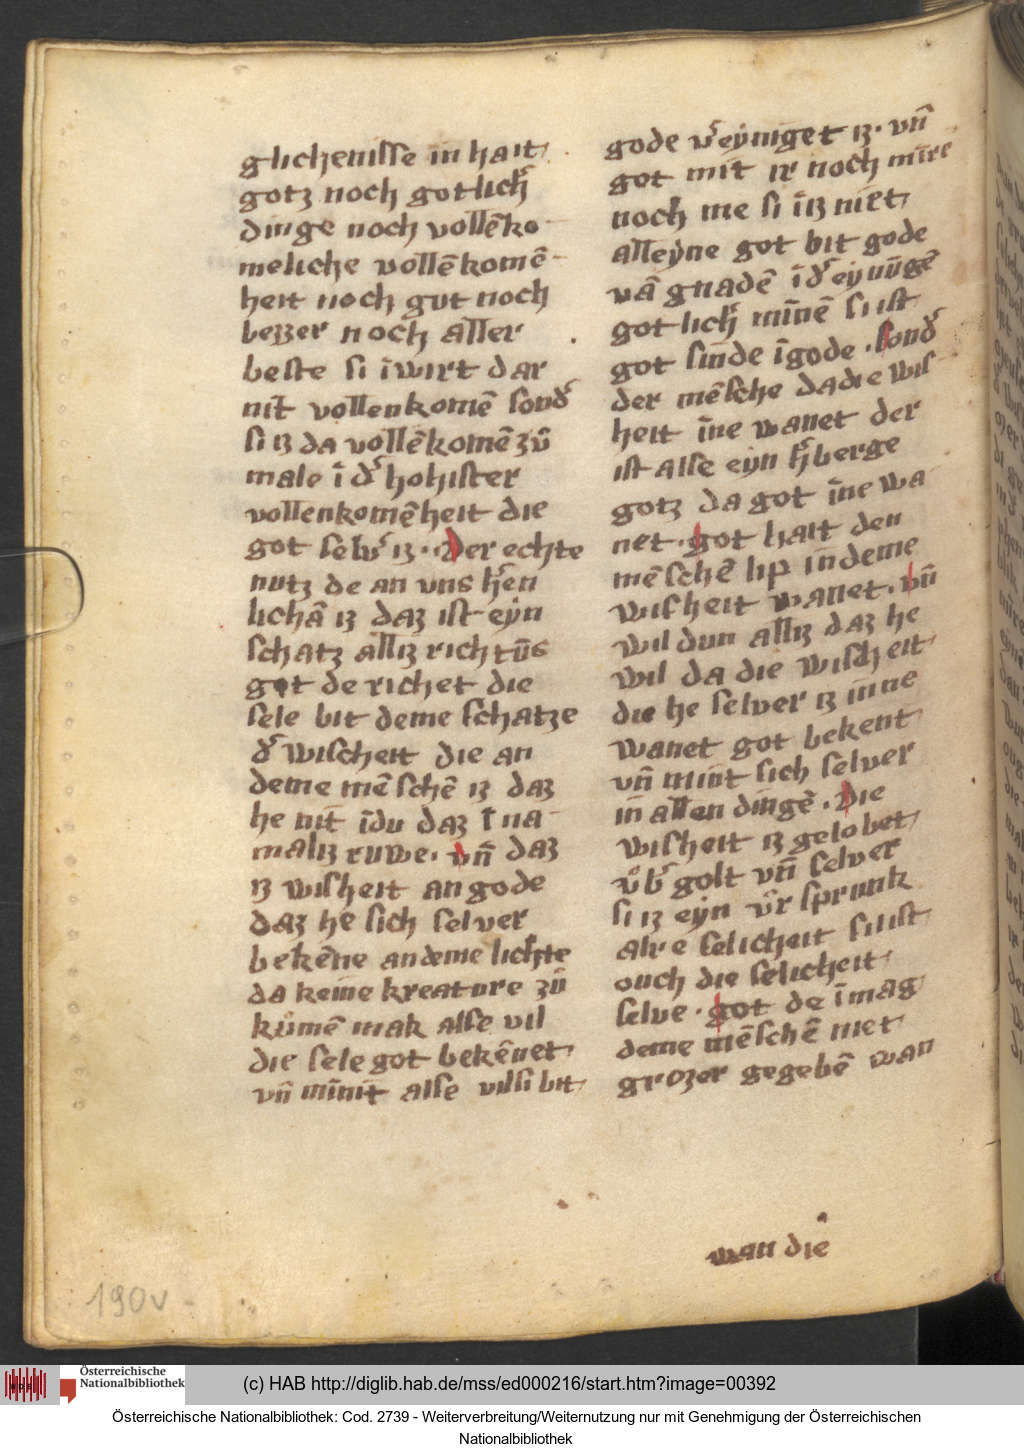 glichenisse in hait
gotz noch gotlich̕
dinge noch vollēko
meliche vollēkomē
heit noch gut noch
beʒʒer noch aller
beste si īwirt dar
nit vollenkomē sond̕
si iʒ da vollēkomē zů
male ī d̕ hohister
vollenkomēheit die
got selv̕ iʒ · Der echte
nutz de an vns h̕en
lichā iʒ daʒ ist eyn
schatz alliʒ richtůs
got de richet die
sele bit deme schatze
d̕ wischeit die an
deme mēschē iʒ daʒ
he nit īdu daʒ ī na
maliʒ ruwe · vn̄ daʒ
iʒ wisheit an gode
daʒ he sich selver
bekēne an deme lichte
da keine kreature zů
kůmē mak alse vil
die sele got bekēnet
vn̄ mīnit alse vil si bit
gode v̕eyniget iʒ · vn̄
got mit ir noch mīre
noch me si īiʒ niet
alleyne got bit gode
vā gnadē ī d̕ eynūgē
gotlich̕ mīnē si ist
got sunde īgode · sond̕
der mēsche da die wis
heit īne wanet der
ist alse eyn h̕berge
gotz da got īne wa
net · got hait den
mēschē lip in deme
wisheit wanet · vn̄
wil dun alliʒ daʒ he
wil da die wischeit
die he selver iʒ inne
wanet got bekent
vn̄ mint sich selver
in allen dingē · Die
wisheit iʒ gelobet
v̊b̕ golt vn̄ selver
si iʒ eyn v̊r sprunk
alre selicheit si ist
ouch die selicheit
selve · got de ī mag
deme mēschē niet
grozer gegebē wan
wan die
190v
Österreichische
Nationalbibliothek
(c) HAB http://diglib.hab.de/mss/ed000216/start.htm?image=00392
Österreichische Nationalbibliothek: Cod. 2739 - Weiterverbreitung/Weiternutzung nur mit Genehmigung der Österreichischen
Nationalbibliothek